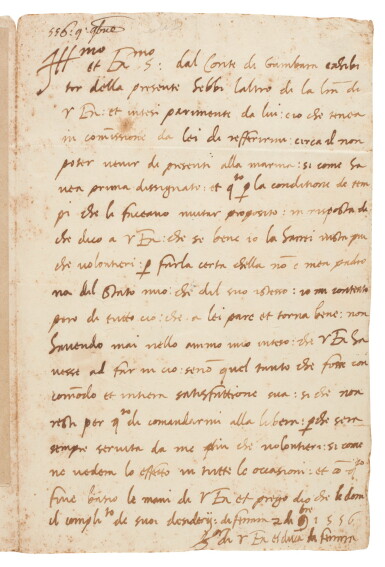 556: 9: 9bre
Ill mo et Ex mo S: dal Conte di Gambara exhibi
tor della presente hebbi laltro di la lra di
v Ex: et intesi parimente da lui: cio che tenea
in commissione da lei di refferirmi: cerca il non
poter venir di presenti alla marina: si come ha
vea prima dissignato: et q.to p la conditione de tem
pi che le faceano mutar proposito: in risposta di
che dico a v Ex: che se bene io la harei vista piu
che volontieri: p farla certa chella nõ e men padro
na dil stato mio: che dil suo istesso: io mi contento
pero di tutto cio: che a lei pare et torna bene: non
havendo mai nello animo mio inteso: che v Ex ha
vesse al far in cio: senõ quel tanto che fosse con
commodo et intiera satisfattione sua: si che non
resti per q.to di comandarmi alla libera: p che sera
sempre servita da me piu che volontieri: si come
ne vederà lo effetto in tutte le occasioni: et
fine bascio le mani di v Ex et prego dio che le doni
il compli.to de suoi desiderij: di ferrara 2 di 9 bre: 1556
di v Ex il duca di ferrara